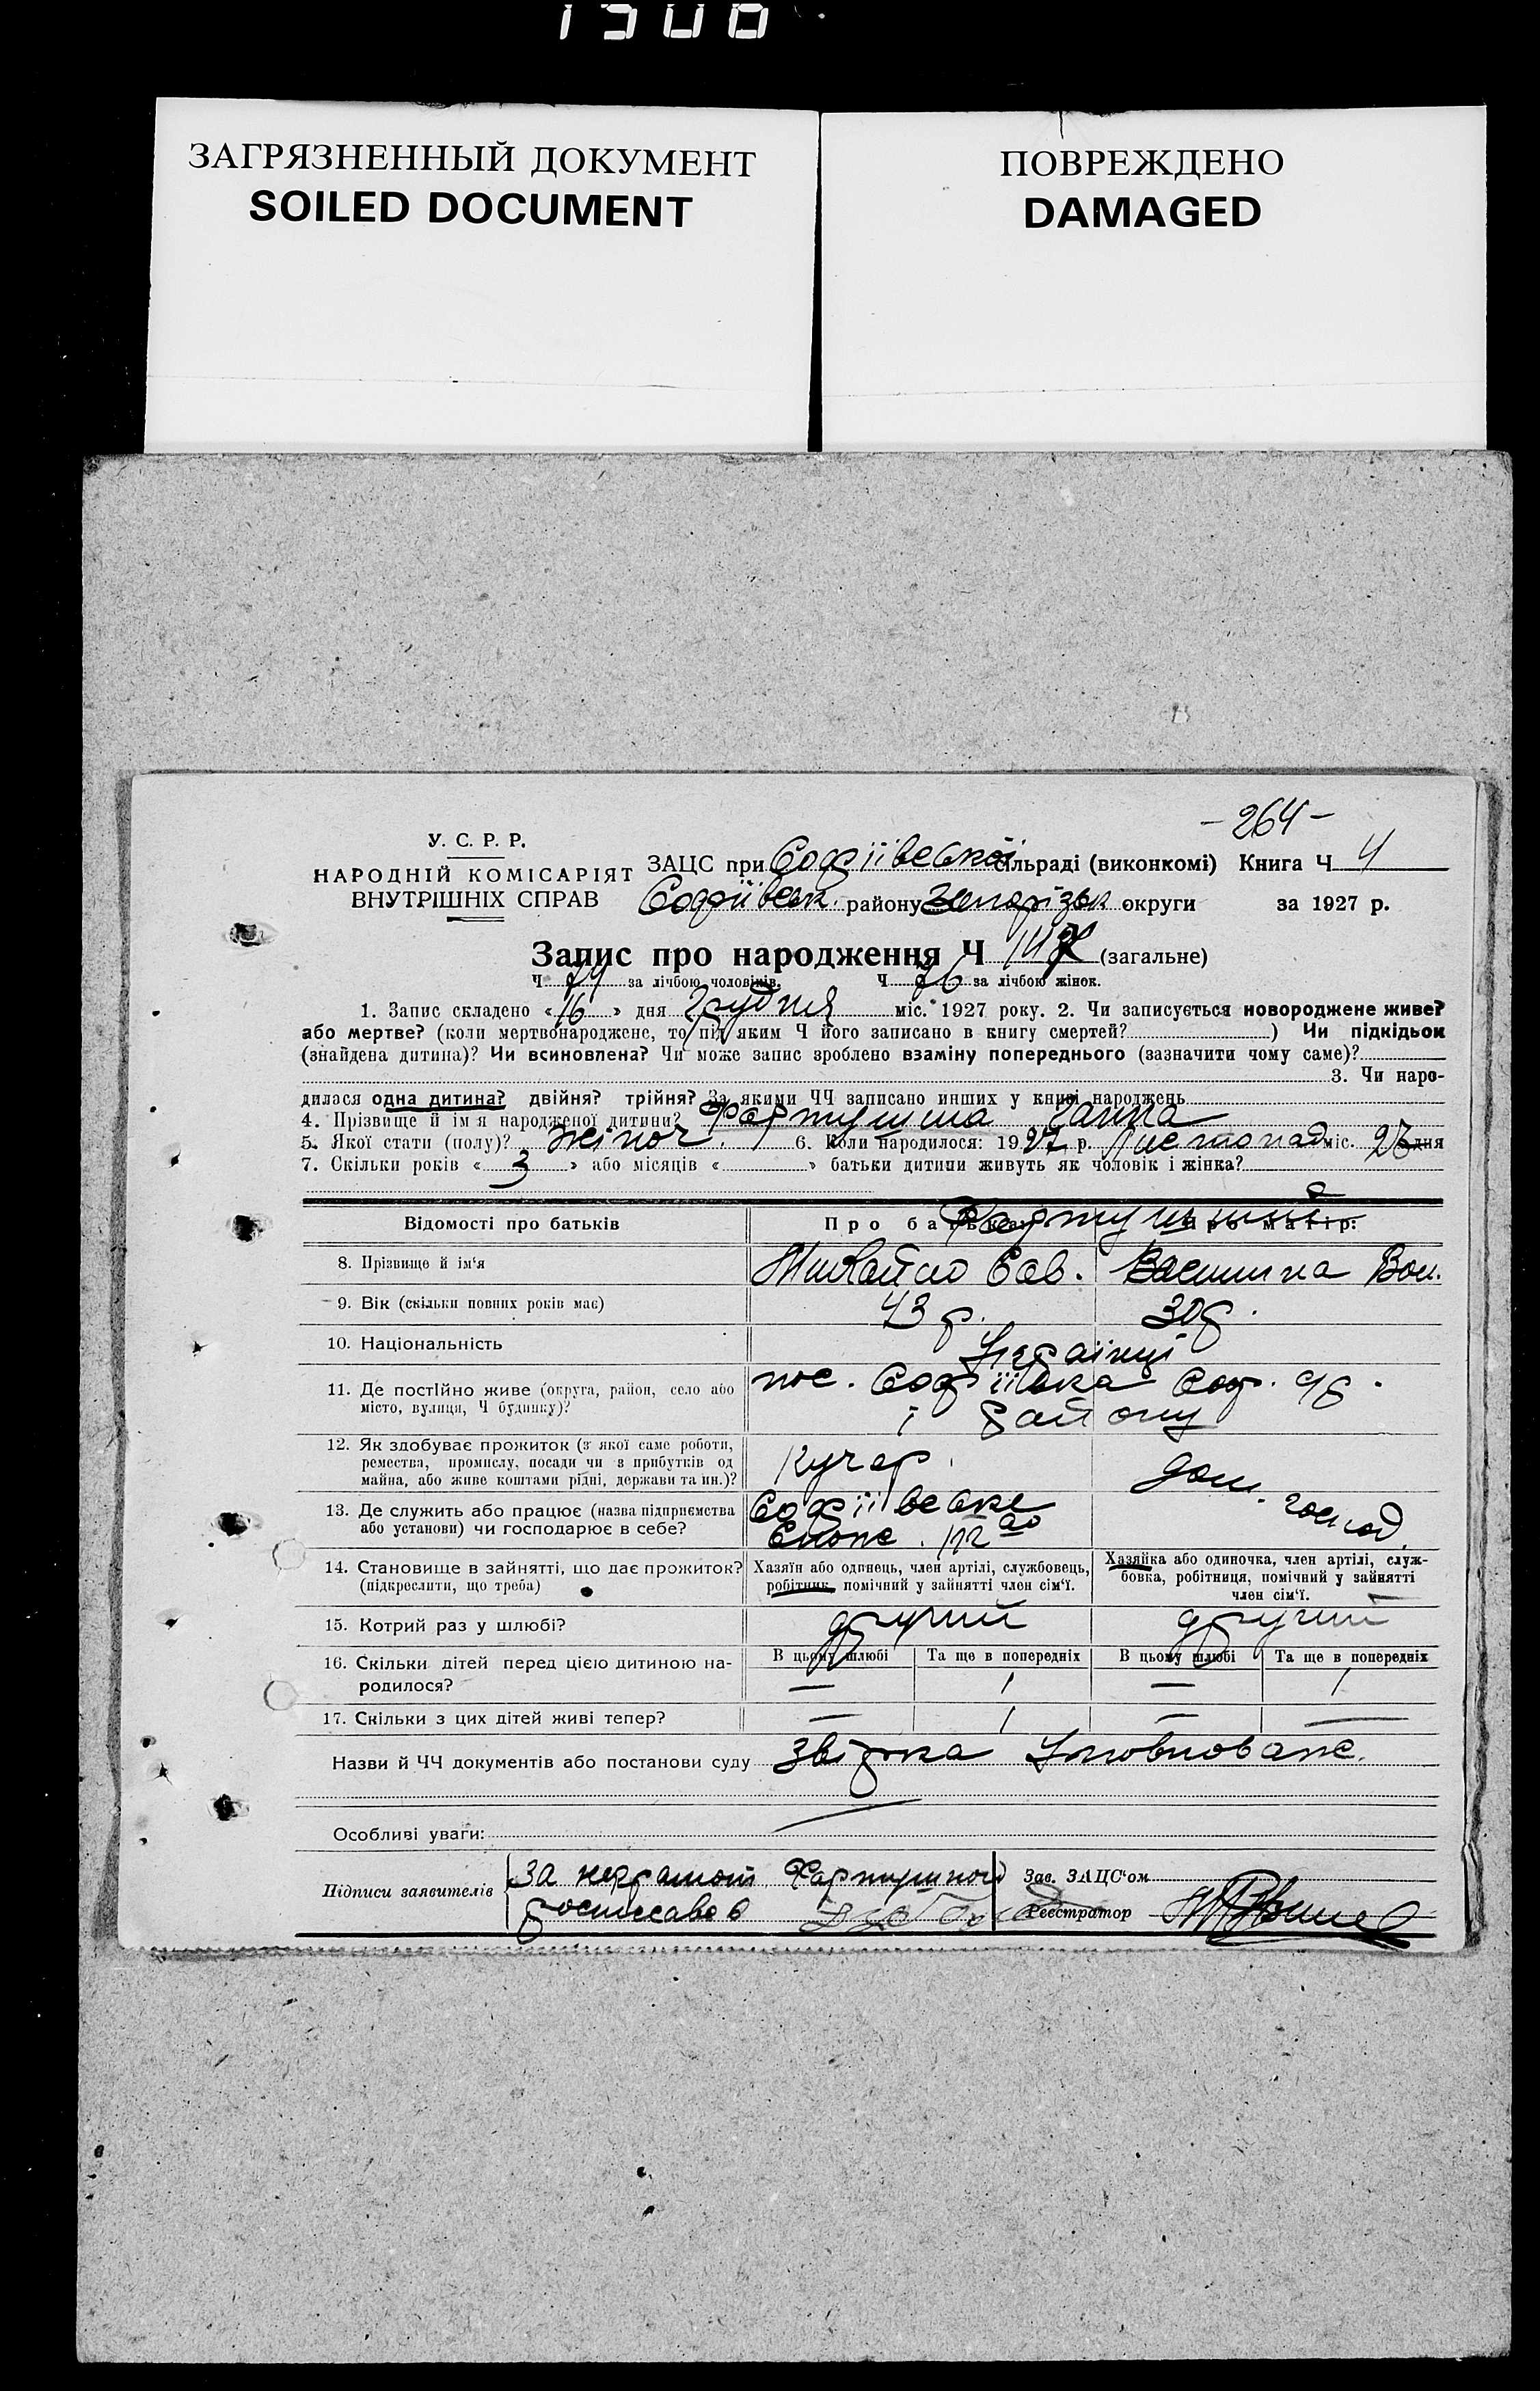 ЗАГРЯЗНЕННЫЙ ДОКУМЕНТ
SOILED DOCUMENT
ПОВРЕЖДЕНО
DAMAGED
-264-
У. С. Р. Р.
НАРОДНІЙ КОМІСАРІЯТ
ВНУТРІШНІХ СПРАВ
ЗАЦС при Софіївської сільраді (виконкомі) Книга Ч 4
Софіївськ. району Запорізьк округи за 1927 р.
Запис про народження Ч (загальне)
Ч за лічбою чоловіків. Ч 76 за лічбою жінок.
1. Запис складено «16» дня Грудня міс. 1927 року. 2. Чи записується новороджене живе?
або мертве? (коли мертвонароджене, то під яким Ч його записано в книгу смертей? ) Чи підкідьок
(знайдена дитина)? Чи всиновлена? Чи може запис зроблено взаміну попереднього (зазначити чому саме)?
3. Чи наро-
дилася одна дитина? двійня? трійня? За якими ЧЧ записано инших у книзі народжень
4. Прізвище й ім'я народженої дитини? Фартушна Ганна
5. Якої стати (полу)? жіноч. 6. Коли народилося: 1927 р. Листопад міс. дня
7. Скільки років «3» або місяців « » батьки дитини живуть як чоловік і жінка?
Відомості про батьків Про батька: Про матір:
Фартушні
8. Прізвище й ім'я Михайло Сав. Василина
9. Вік (скільки повних років має) 43 р. 30 р.
10. Національність Українці
11. Де постійно живе (округа, район, село або
місто, вулиця, Ч будинку)?
пос. Софіївка Соф.
і району
12. Як здобуває прожиток (з якої саме роботи,
ремества, промислу, посади чи з прибутків од
майна, або живе коштами рідні, держави та ин.)?
Кучер дом. господ.
13. Де служить або працює (назва підприємства
або установи) чи господарює в себе?
Софіївське
Спож.
14. Становище в зайнятті, що дає прожиток?
(підкреслити, що треба)
Хазяїн або одинець, член артілі, службовець,
робітник, помічний у зайнятті член сім'ї.
Хазяйка або одиночка, член артілі, служ-
бовка, робітниця, помічний у зайнятті
член сім'ї.
15. Котрий раз у шлюбі? другий другий
16. Скільки дітей перед цією дитиною на-
родилося?
В цьому шлюбі Та ще в попередніх В цьому шлюбі Та ще в попередніх
— 1 — 1
17. Скільки з цих дітей живі тепер? — 1 — —
Назви й ЧЧ документів або постанови суду Звірка
Особливі уваги:
Підписи заявителів За неграмот Фартушного
Зав. ЗАЦС'ом
Реєстратор